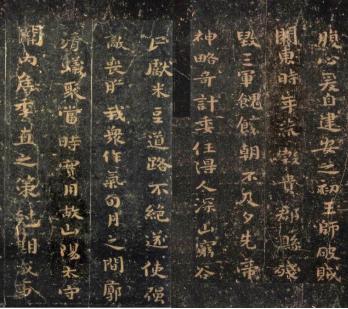 腹心爰自建安之初王師破賊
關東時年荒穀貴郡縣殘
毀三軍餽饟朝不及夕先帝
神略奇計委任得人深山窮谷
民獻米豆道路不絕遂使强
敵喪膽我衆作氣旬月之間廓
清蟻聚當時實用故山陽太守
關內侯季直之策尅期成事